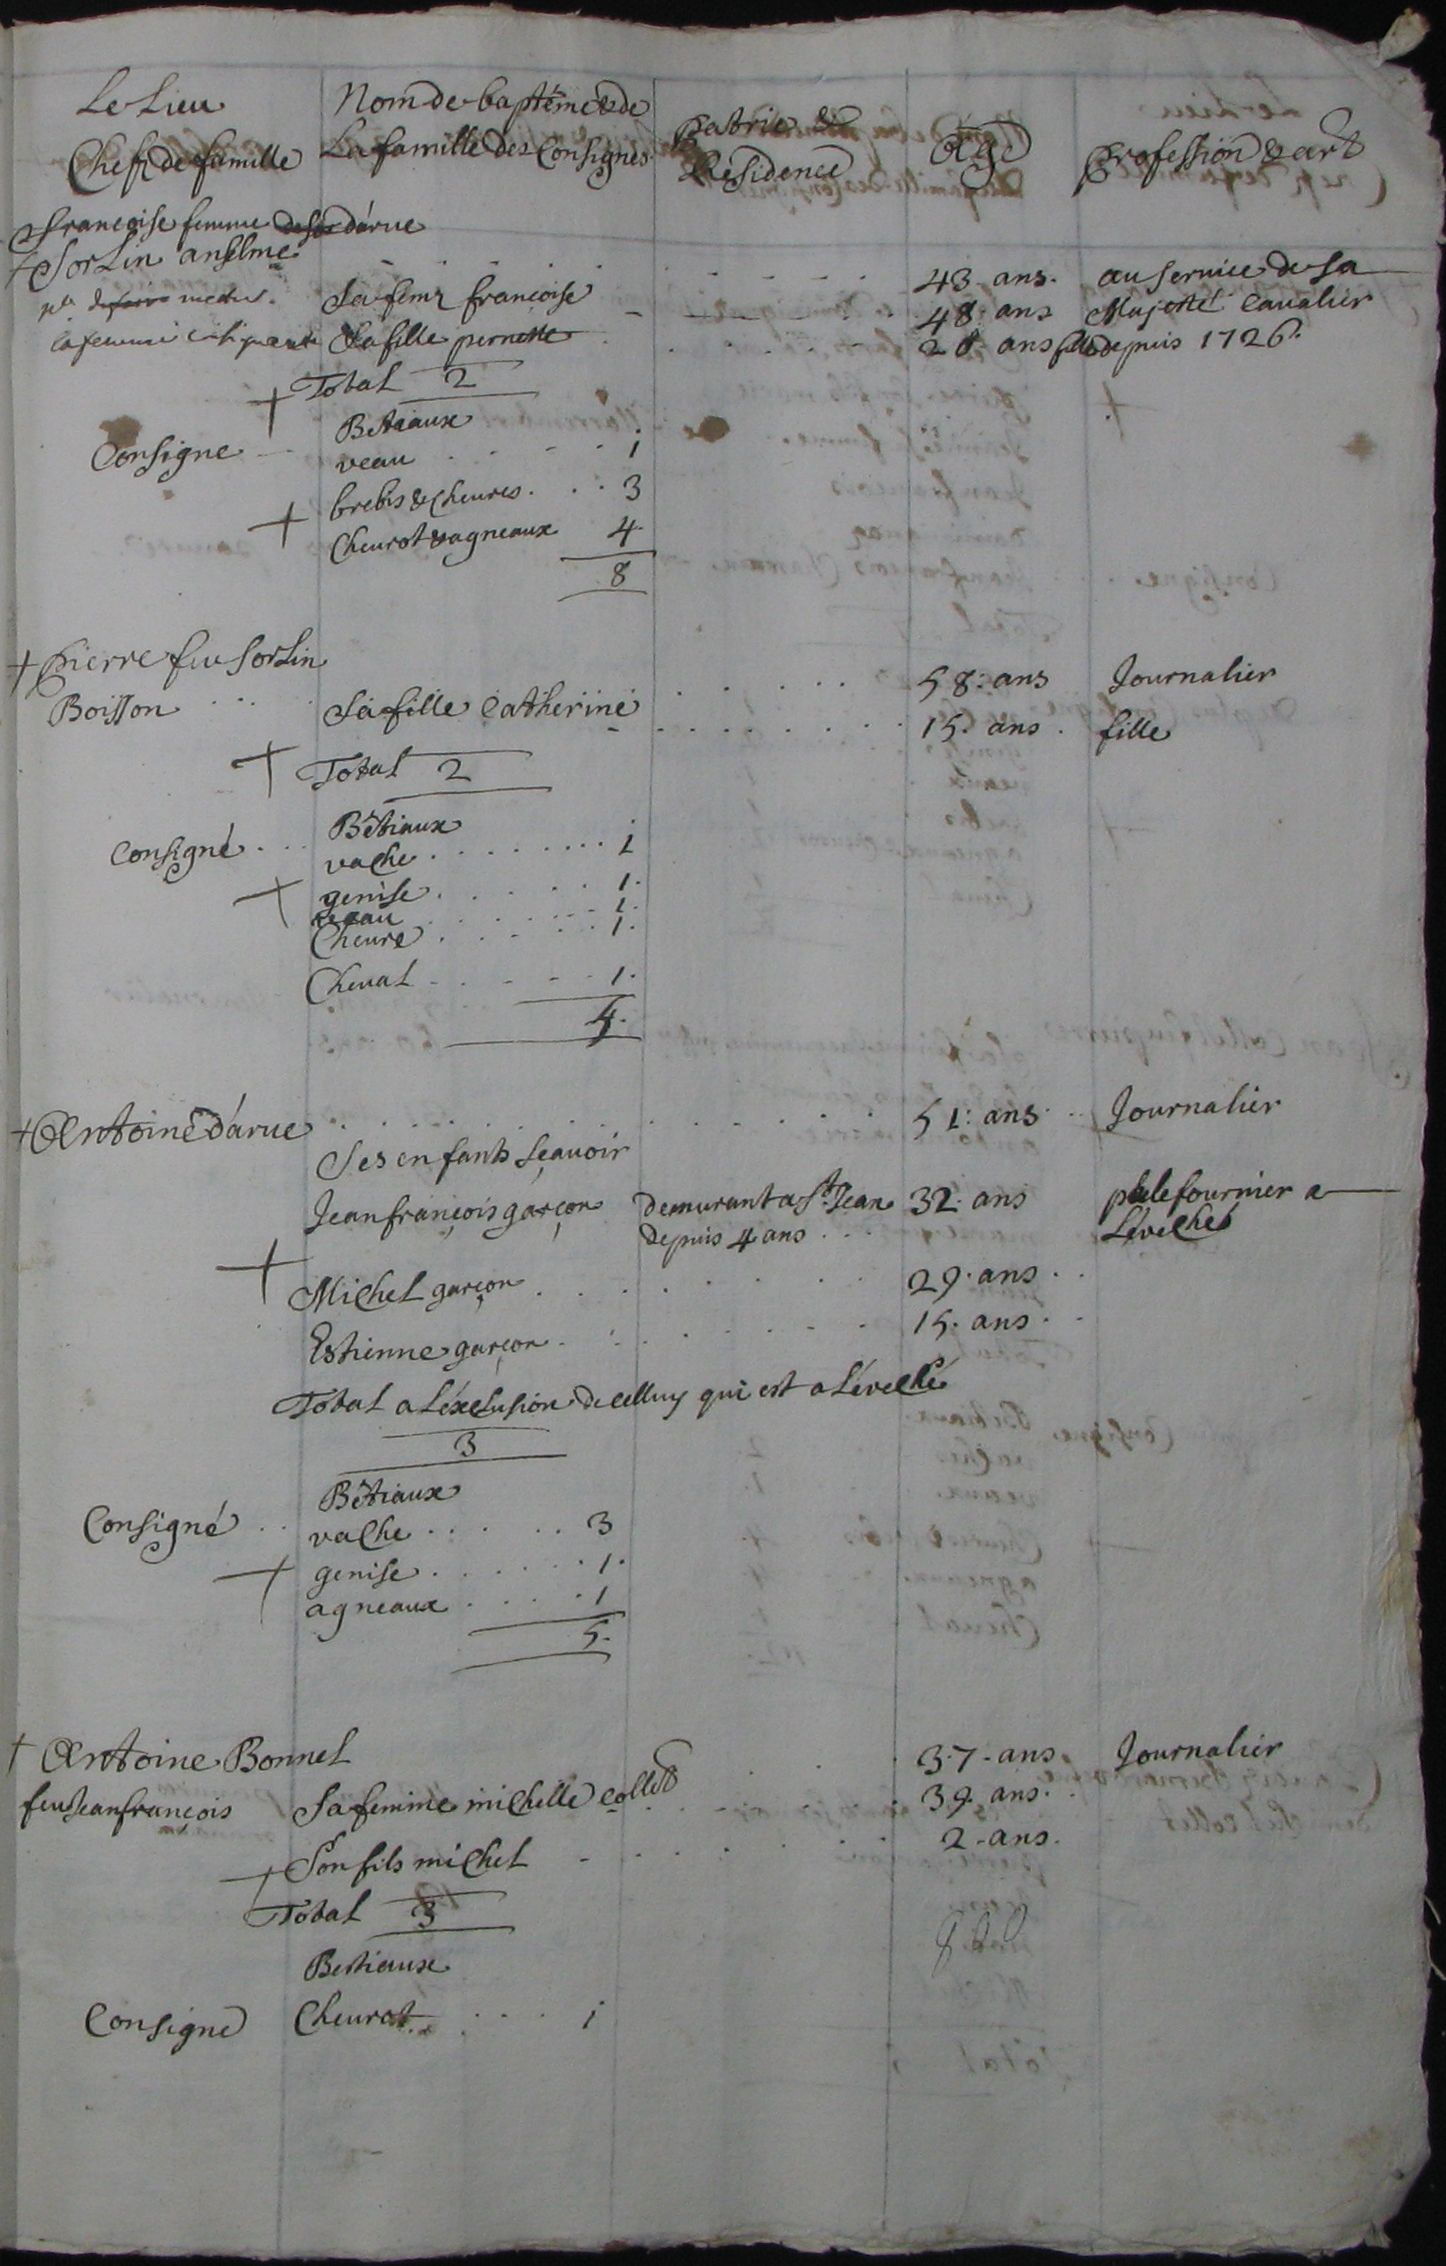 Le Lieu Nom de baptéme & de Patrie & Age Profession & art
Chefz de famille La famille des Consignés Residence
francoise femme darue
+ Sorlin anselme 43 ans. au service de sa
Sa femz francoise 48 ans Majesté Cavalier
la femme Sa fille pernette 28 ans fille depuis 1726.
+ Total 2
Betiaux
Consigne veau 1
brebis & cheures 3
+ Cheurot & agneaux 4
8
+ pierre feu Sorlin
Boisson 58 ans Journalier
Sa fille Catherine 15 ans fille
+ Total 2
Bêtiaux
Consigné vache 1
+ genise 1
veau 1
Cheure 1
Cheual 1
5
+ Antoine darue 51 ans Journalier
Ses enfants sçauoir
Jean françois garçon demurant a St Jean 32 ans palefournier a
depuis 4 ans Léveché
+ Michel garçon 29 ans
Estienne garçon 15 ans
Total a Léxclusion de celluy qui est a Léveché
3
Bêtiaux
Consigné vache 3
+ genise 1
agneaux 1
5
+ Antoine Bonnel 37 ans Journalier
feu Jean françois Sa femme michelle collet 39 ans
+ Son fils michel 2 ans
Total 3
Bestiaux
Consigne Cheurot 1